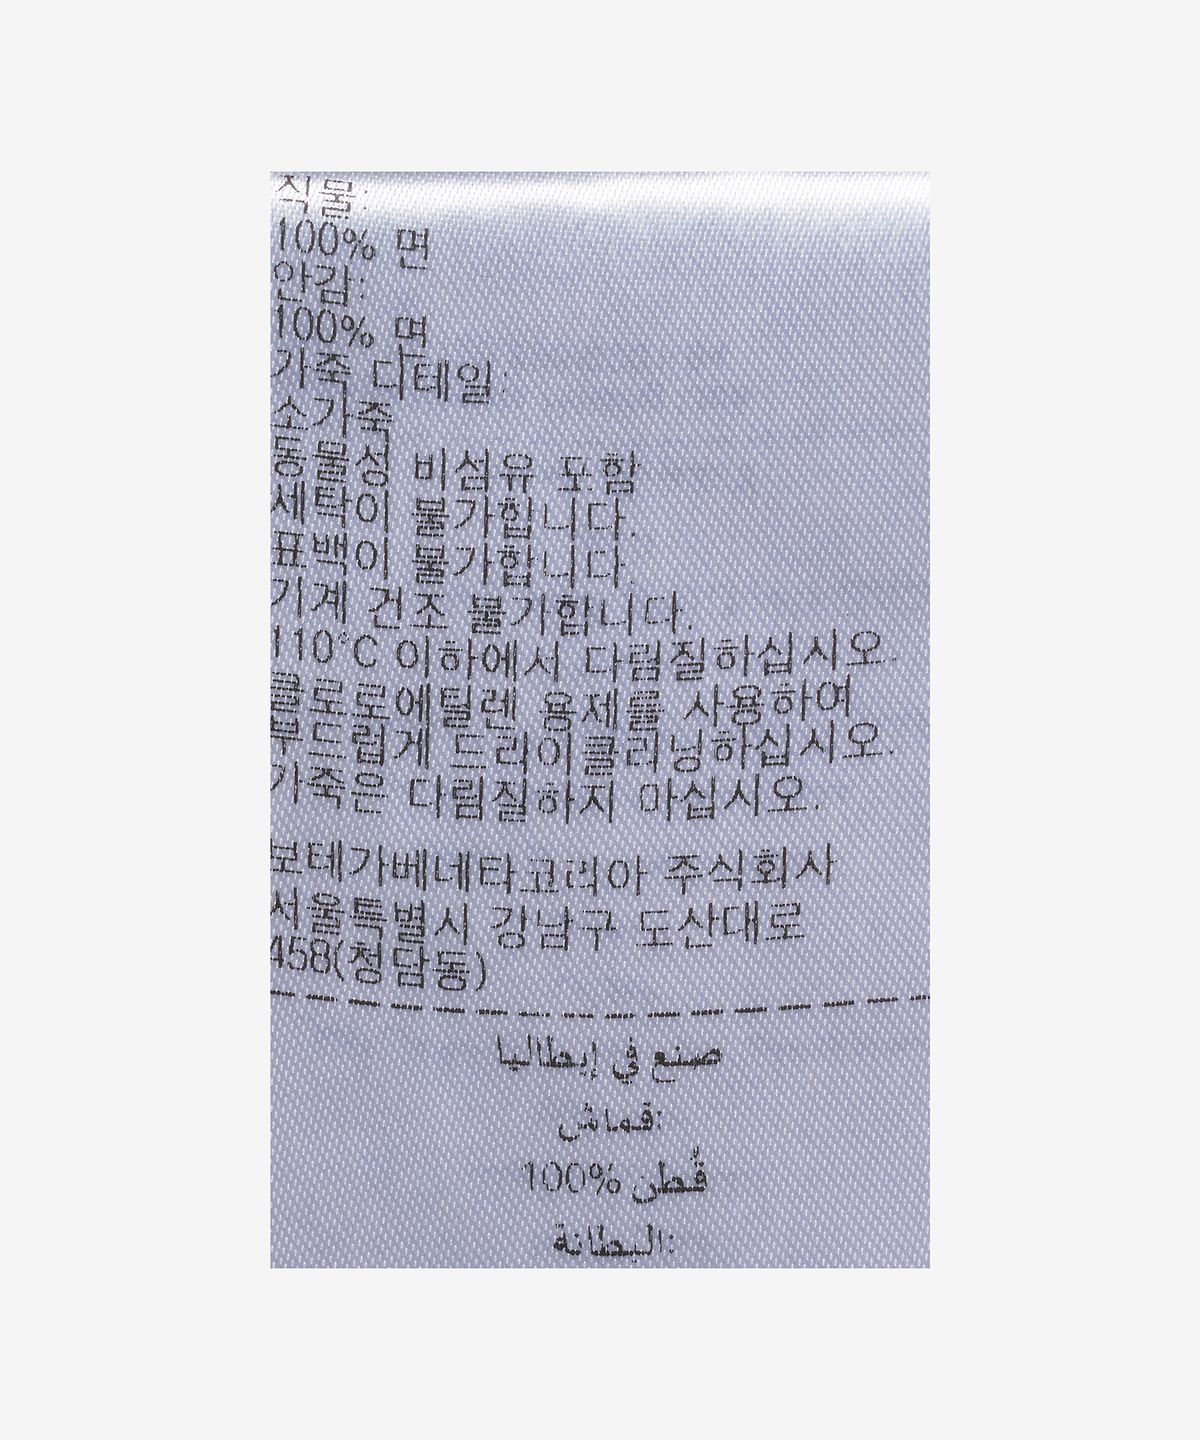 직물:
100% 면
안감:
100% 면
가죽 디테일:
소가죽
동물성 비섬유 포함
세탁이 불가합니다.
표백이 불가합니다.
기계 건조 불가합니다.
110°C 이하에서 다림질하십시오.
클로로에틸렌 용제를 사용하여
부드럽게 드라이클리닝하십시오.
가죽은 다림질하지 마십시오.
보테가베네타코리아 주식회사
서울특별시 강남구 도산대로
458(청담동)
صنع في إيطاليا
قماش:
100% قُطن
البطانة: